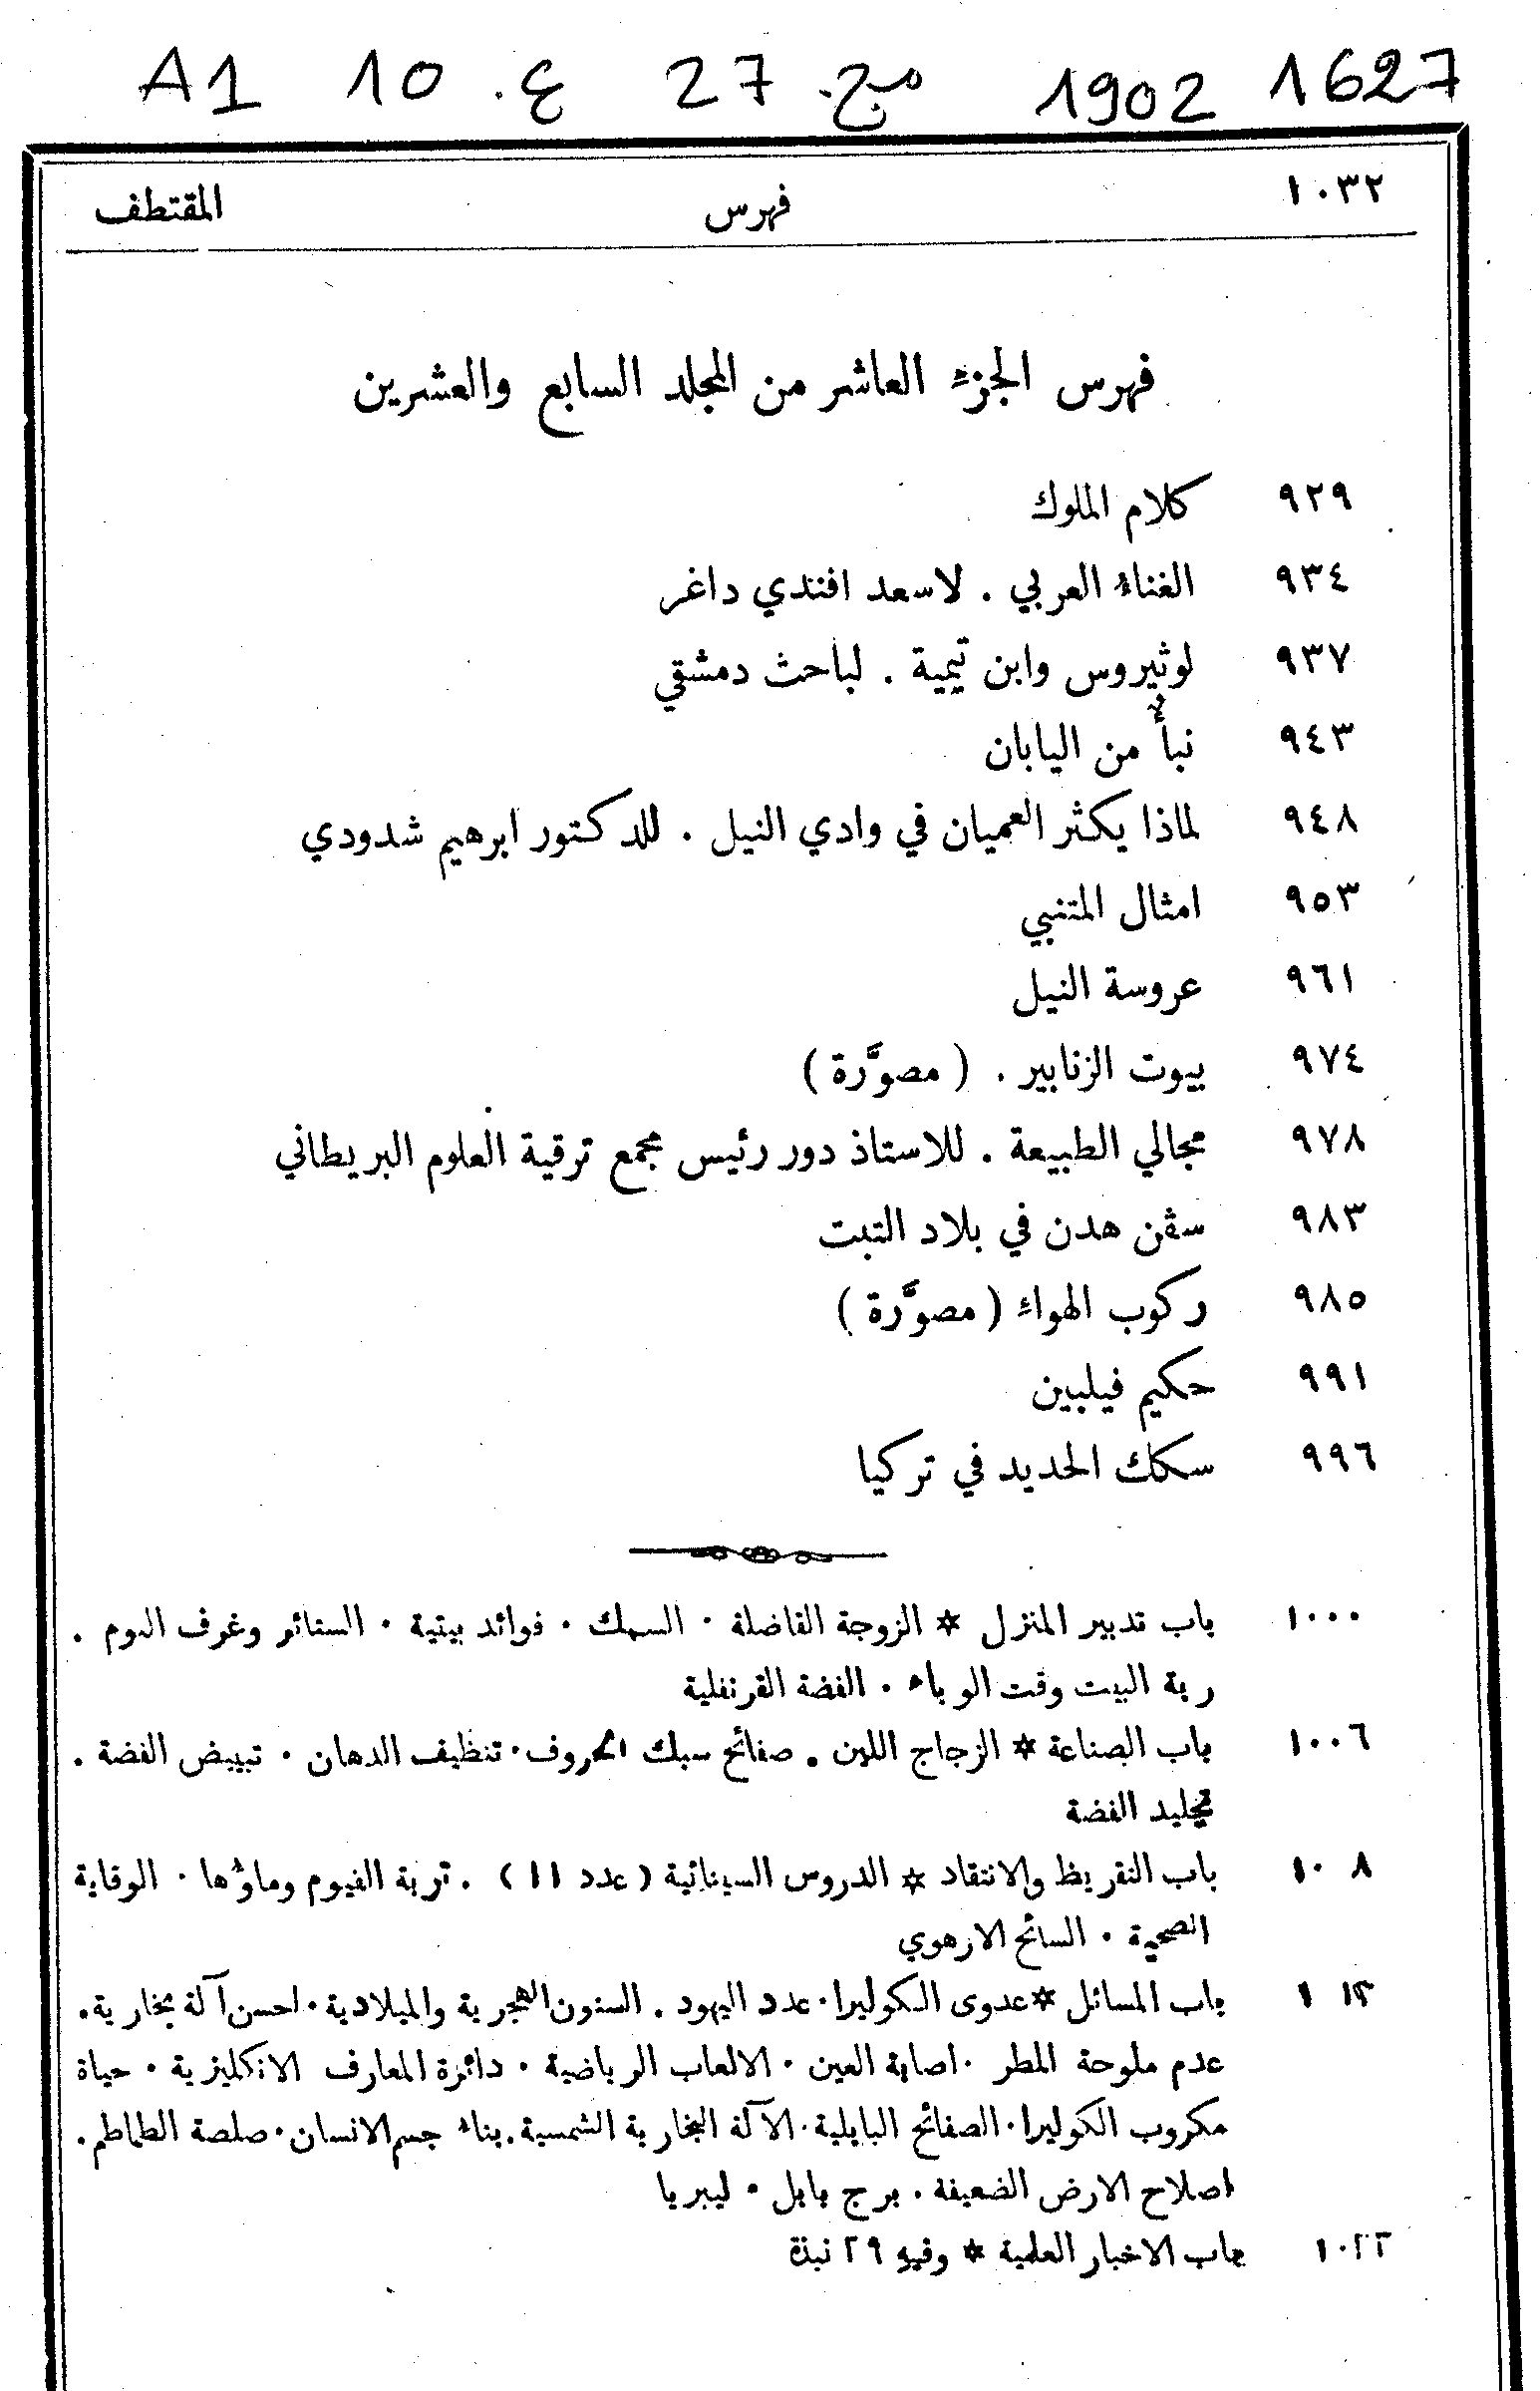 1627 1902 مج. 27 ع. 10 A1
١٠٣٢ فهرس المقتطف
فهرس الجزء العاشر من المجلد السابع والعشرين
٩٢٩ كلام الملوك
٩٣٤ الغناء العربي . لاسعد افندي داغر
٩٣٧ لوثيروس وابن تيمية . لباحث دمشقي
٩٤٣ نبأ من اليابان
٩٤٨ لماذا يكثر العميان في وادي النيل . للدكتور ابرهيم شدودي
٩٥٣ امثال المتنبي
٩٦١ عروسة النيل
٩٧٤ بيوت الزنابير . ( مصوَّرة )
٩٧٨ مجالي الطبيعة . للاستاذ دور رئيس مجمع ترقية العلوم البريطاني
٩٨٣ سڤن هدن في بلاد التبت
٩٨٥ ركوب الهواء ( مصوَّرة )
٩٩١ حكيم فيلبين
٩٩٦ سكك الحديد في تركيا
١٠٠٠ باب تدبير المنزل * الزوجة الفاضلة . السمك . فوائد بيتية . الستائر وغرف النوم .
ربة البيت وقت الوباء . الفضة القرنفلية
١٠٠٦ باب الصناعة * الزجاج اللين . صفائح سبك الحروف . تنظيف الدهان . تبييض الفضة .
تجليد الفضة
١٠٠٨ باب التقريظ والانتقاد * الدروس السينائية ( عدد ١١ ) . تربة الفيوم وماؤها . الوقاية
الصحية . السائح الارهوي
باب المسائل * عدوى الكوليرا . عدد اليهود . السنون الهجرية والميلادية . احسن آلة بخارية .
عدم ملوحة المطر . اصابة العين . الالعاب الرياضية . دائرة المعارف الانكليزية . حياة
مكروب الكوليرا . الصفائح البابلية . الآلة البخارية الشمسية . بناء جسم الانسان . صلصة الطماطم .
اصلاح الارض الضعيفة . برج بابل . ليبريا
باب الاخبار العلمية * وفيه ٢٩ نبذة